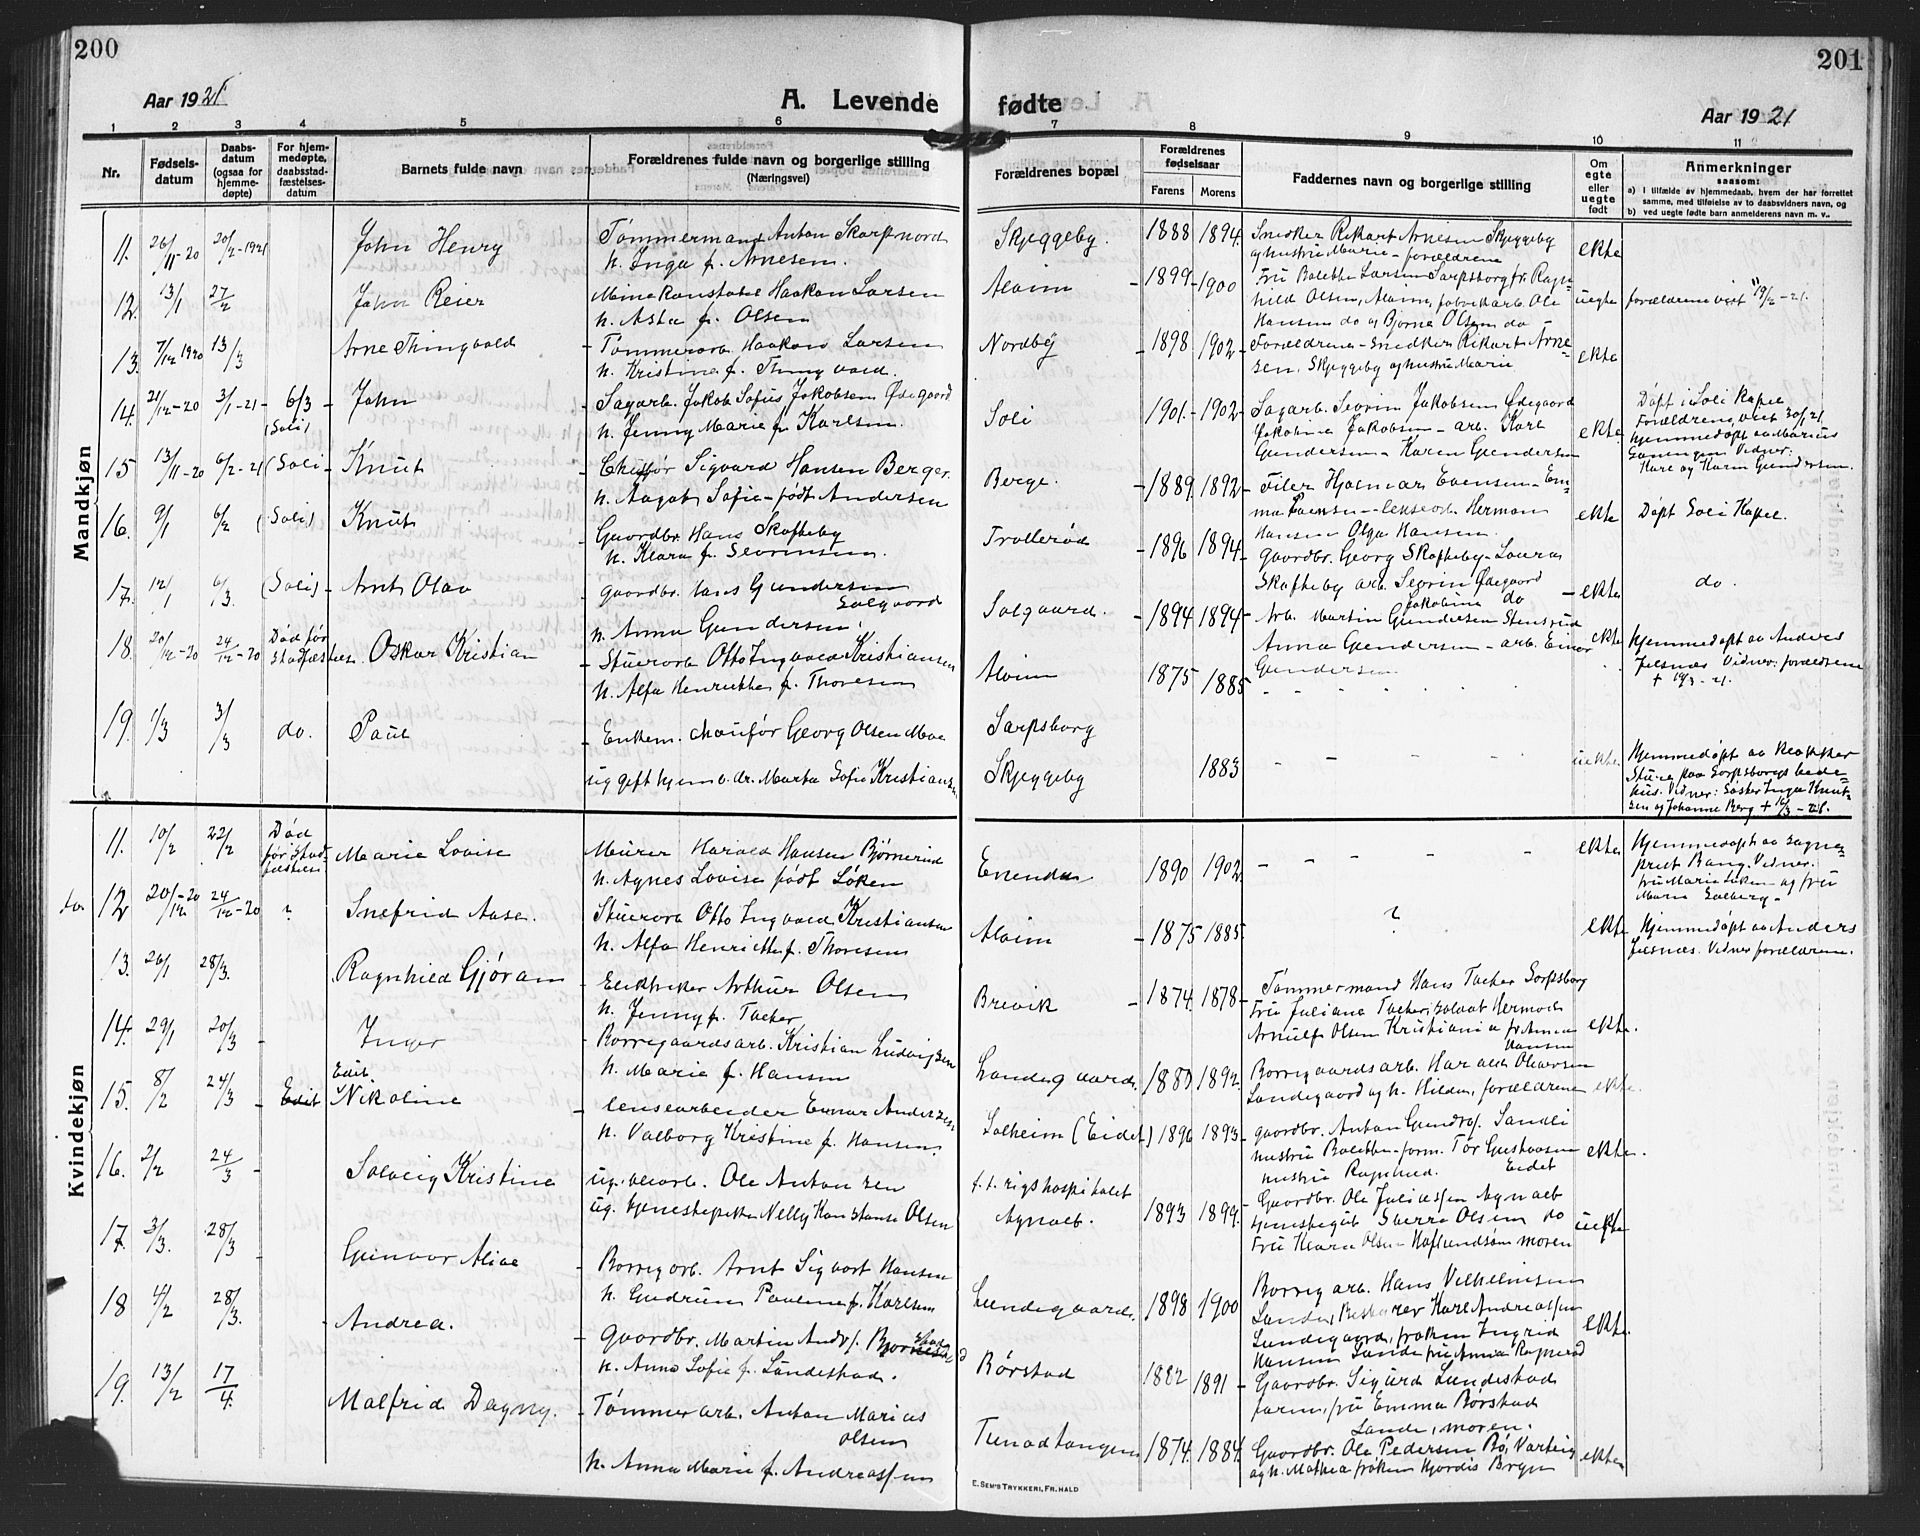 200
201
Aar 1921
A. Levende
fødte
Aar 1921
1 2 3 4 5 6 7 8 9 10 11
Nr.
Fødsels-
datum
Daabs-
datum
(ogsaa for
hjemme-
døpte)
For hjem-
medøpte,
daabsstad-
fæstelses-
datum
Barnets fulde navn
Forældrenes fulde navn og borgerlige stilling
(Næringsvei)
Forældrenes bopæl
Forældrenes
fødselsaar
Farens
Morens
Faddernes navn og borgerlige stilling
Om
egte
eller
uegte
født
Anmerkninger
saasom:
a) i tilfælde av hjemmedaab, hvem der har forrettet
samme, med tilføielse av to daabsvidners navn, og
b) ved uegte fødte barn anmelderens navn m. v..
Mandkjøn
11. 26/11-20 20/2-1921 John Henry
Tømmermand Anton Skarpnord
h. Inga f. Arnesen.
Skjeggeby. 1888 1894.
Snedker Rikart Arnesen Skjeggeby
og hustru Marie - forældrene
ekte
12. 13/1 27/2 John Reier
Minekonstabel Haakon Larsen
h. Asta f. Olsen
Alvim 1899 - 1900
Fru Bolette Larsen Sarpsborg fr. Ragn-
hild Olsen, Alvim, fabrikarb. Ole
Hansen do og Bjarne Olsen do
uegte
forældrene viet 19/2-21.
13. 7/12 1920 13/3 Arne Thingvald
Tømmerarb. Haakon Larsen
h. Kristine f. Thingvald.
Nordby 1898 - 1902
Forældrene - Snedker Rikart Arne-
sen. Skjeggeby og hustru Marie
ekte
14. 21/12-20 3/1-21 6/3 (Soli) John
Sagarb. Jakob Sofus Jakobsen Ødegaard
h. Jenny Marie f. Karlsen.
Soli 1901. - 1902
Sagarb. Severin Jakobsen Ødegaard
Jakobine Jakobsen - arb. Kare
Gundersen - Karen Gundersen
ekte
Døpt i Soli Kapel
Forældrene viet 30/1 21
Hjemmedøpt av Marius
Vidner:
Kare og Karen Gundersen.
15 13/11-20 6/2-21 (Soli) Knut
Chuffør Sigvard Hansen Berger
h. Aagot Sofie - født Andersen
Berge. 1889 1892
Filer Hjalmar Evensen - Em-
ma Evensen - lensearb. Herman
Hansen Olga Hansen.
ekte
Døpt Soli Kapel.
16. 9/1 6/2 (Soli) Knut
Gaardbr. Hans Skofteby
h. Klara f. Severinsen.
Trollerød 1896 1894
gaardbr. Georg Skofteby - Laura
Skofteby arb. Severin Ødegaard
Jakobine do
ekte
do.
17. 12/1 6/3. (Soli) Arnt Olav
gaardbr. Lars Gundersen
Solgaard
h. Anna Gundersen.
Solgaard. 1894 1894
Arb. Martin Gundersen Stensrud
Anna Gundersen - arb. Einar
Gundersen
ekte
18. 20/12-20 24/12-20 Død før
Stadfæstelsen Oskar Kristian
Stuerarb Otto Ingvald Kristiansen
h. Alfa Henrikke f. Thoresen
Alvim 1875 1885
Hjemmedøpt av Anders
Jelsnæs Vidner: forældrene
+ 19/3-21.
19. 1/3 3/3 do. Paul
Enkem. chaufør Georg Olsen Moe
ug gift hjemv. dr. Marta Sofie Kristiansen
Sarpsborg
Skjeggeby 1883
uekte
Hjemmedøpt av
Stene paa Sarpsborgs bede-
hus. Vidner: Søster Inga Knut-
sen og Johanne Berg + 16/3-21.
Kvindekjøn
11. 10/2 22/2 Død
før Stad-
fæstelsen Marie Lovise
Murer Harald Hansen Bjørnerud
h. Agnes Lovise født Løken
Enenda 1890 1902.
ekte
Hjemmedøpt av sogne-
prest Bang. Vidner.
fru Marie Løken og fru
Marie Solberg -
do. 12 20/12-20 24/12-20 " Snefrid Aase.
Stuerarb Otto Ingvald Kristiansen
h. Alfa Henrikke f. Thoresen
Alvim 1875 1885.
?
ekte
Hjemmedøpt av Anders
Jelsnæs. Vidner forældrene.
13. 26/1 28/3. Ragnhild Gjøran
Elektriker Arthur Olsen
h. Jenny f. Tacker
Brevik 1874. 1878
Tømmermand Hans Tacker Sarpsborg
Fru Juliane Tacker, soldat Hermod
Arnulf Olsen Kristiania fr. Anna
Hansen
ekte.
14. 29/1 20/3 Inger
Borregaardsarb. Kristian Ludvigsen
h. Marie f. Hansen
Landegaard. 1889. 1892.
Borregaardsarb. Harald Olavesen
Landegaard og h. Hilda, forældrene
ekte.
15. 8/2 24/3 Edit Edit. Nikoline
lensearbeider Einar Andersen
h. Valborg Kristine f. Hansen.
Solheim (Eidet) 1896 1893.
gaardbr. Anton Gundrs. Sandli
hustru Bolette - form. Tor Gustavsen
hustru Ragnhild. Eidet
ekte.
16. 2/2 24/3 Solveig Kristine
ug. veiarb. Ole Antonsen
ug. tjenestepike Nelly Konstanse Olsen
f. t. rigshospitalet
Agnalt. 1893 1899.
Gaardbr. Ole Juliussen Agnalt
Sverre Olsen do
Fru Klara Olsen Hafslundsøen moren
uekte
17. 3/3. 28/3 Gunvor Alise
Borreg.arb. Arnt Sigvart Hansen
h. Gudrun Pauline f. Karlsen
Lundegaard. 1898 1900
Borreg arb. Hans Vilhelmsen
Lande, Karl Andreassen
Lundegaard, frøken Ingrid
Hansen Lande fru Anna Ragnerød
ekte.
18 4/2 28/3. Andrea.
Gaardbr. Martin Andrs.
h. Anna Sofie f. Lundestad.
Børstad 1882 1891
Gaardbr. Sigurd Lundestad
farm, fru Emma Børstad
Lande, moren.
19. 13/2 17/4. Malfrid Dagny.
Tømmerarb. Anton Marius
Olsen
h. Anna Marie f. Andreassen
Tunadtangen 1874. 1884.
Gaardbr. Ole Pedersen Bø, Varteig
og h. Mathea frøken Hjørdis Bryn
ekte
E. SEM'S TRYKKERI, FR.HALD